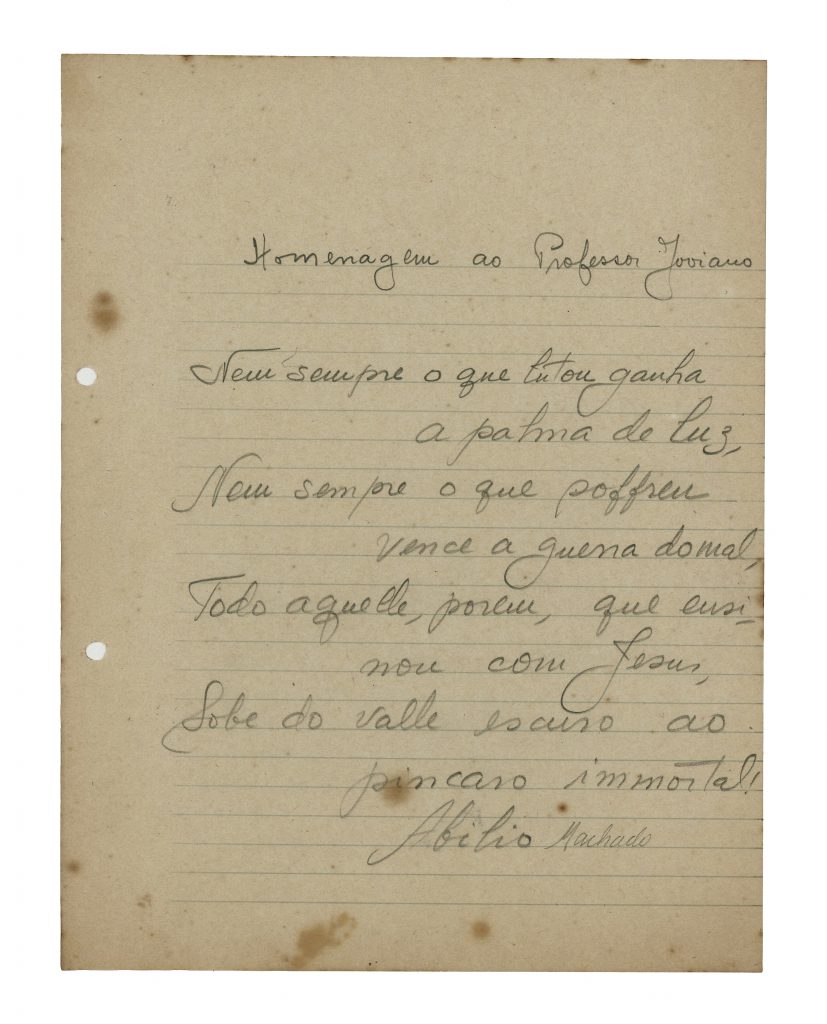 Homenagem ao Professor Joviano
Nem sempre o que lutou ganha
a palma de luz,
Nem sempre o que soffreu
vence a guerra do mal,
Todo aquelle, porem, que ensi-
nou com Jesus,
Sobe do valle escuro ao
pincaro immortal!
Abilio Machado